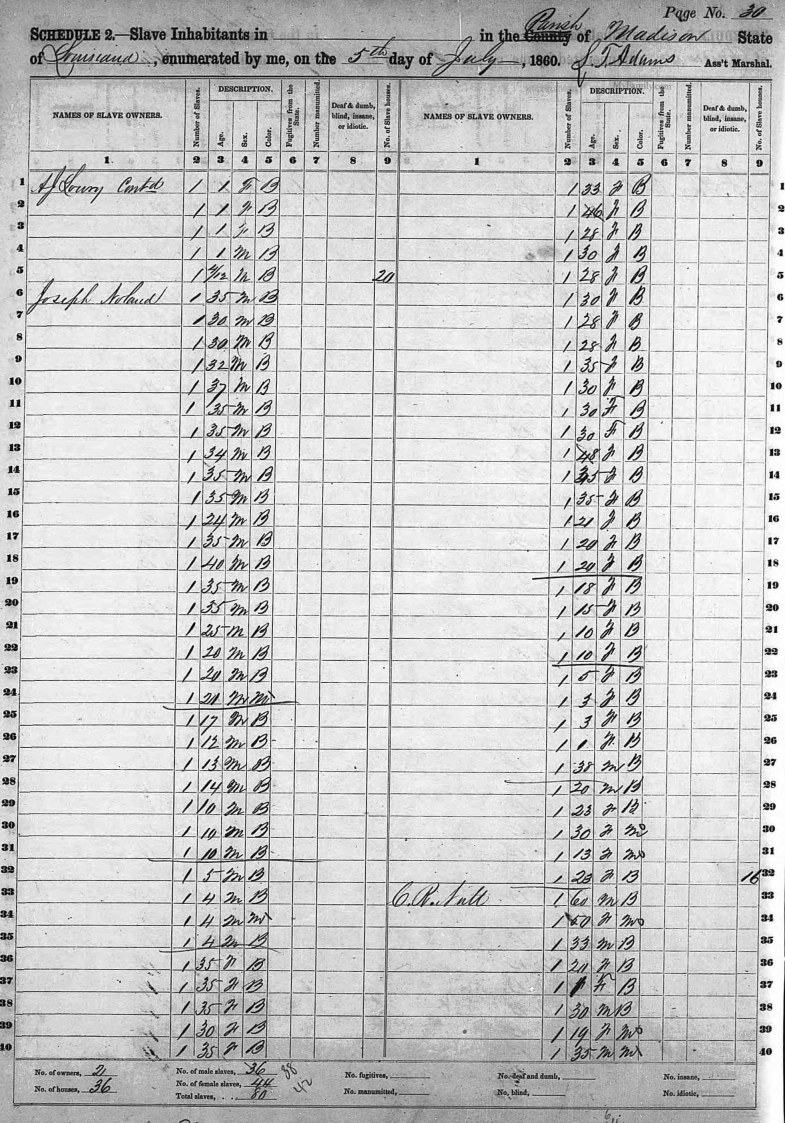 Page No. 30
SCHEDULE 2.—Slave Inhabitants in in the Parish County of Madison State
of Louisiana, enumerated by me, on the 5th day of July, 1860. S. T. Adams Ass't Marshal.
NAMES OF SLAVE OWNERS. Number of Slaves. DESCRIPTION. Age. Sex. Color. Fugitives from the State. Number manumitted. Deaf & dumb, blind, insane, or idiotic. No. of Slave houses. NAMES OF SLAVE OWNERS. Number of Slaves. DESCRIPTION. Age. Sex. Color. Fugitives from the State. Number manumitted. Deaf & dumb, blind, insane, or idiotic. No. of Slave houses.
1 2 3 4 5 6 7 8 9 1 2 3 4 5 6 7 8 9
1 Lowry Contd 1 1 F B 1 33 F B 1
2 1 1 F B 1 46 F B 2
3 1 1 F B 1 28 F B 3
4 1 1 M B 1 30 F B 4
5 1 /12 M B 20 1 28 F B 5
6 Joseph Noland 1 35 M B 1 30 F B 6
7 1 30 M B 1 28 F B 7
8 1 30 M B 1 28 F B 8
9 1 32 M B 1 35 F B 9
10 1 37 M B 1 30 F B 10
11 1 35 M B 1 30 F B 11
12 1 35 M B 1 30 F B 12
13 1 34 M B 1 48 F B 13
14 1 35 M B 1 F B 14
15 1 35 M B 1 35 F B 15
16 1 24 M B 1 21 F B 16
17 1 35 M B 1 20 F B 17
18 1 40 M B 1 20 F B 18
19 1 35 M B 1 18 F B 19
20 1 35 M B 1 15 F B 20
21 1 25 M B 1 10 F B 21
22 1 20 M B 1 10 F B 22
23 1 20 M B 1 5 F B 23
24 1 20 M M 1 3 F B 24
25 1 17 M B 1 3 F B 25
26 1 12 M B 1 1 F B 26
27 1 13 M B 1 38 M B 27
28 1 14 M B 1 20 M B 28
29 1 10 M B 1 23 F B 29
30 1 10 M B 1 30 F M 30
31 1 10 M B 1 13 F M 31
32 1 5 M B 1 23 F B 16 32
33 1 4 M B C. R. Nutt 1 60 M B 33
34 1 4 M M 1 50 F M 34
35 1 4 M B 1 33 M B 35
36 1 35 F B 1 20 F B 36
37 1 35 F B 1 1 F B 37
38 1 35 F B 1 30 M B 38
39 1 30 F B 1 19 F M 39
40 1 35 F B 1 35 M M 40
No. of owners, 2 No. of male slaves, 36 38 No. fugitives, No. deaf and dumb, No. insane,
No. of houses, 36 No. of female slaves, 44 42 No. manumitted, No. blind, No. idiotic,
Total slaves, 80